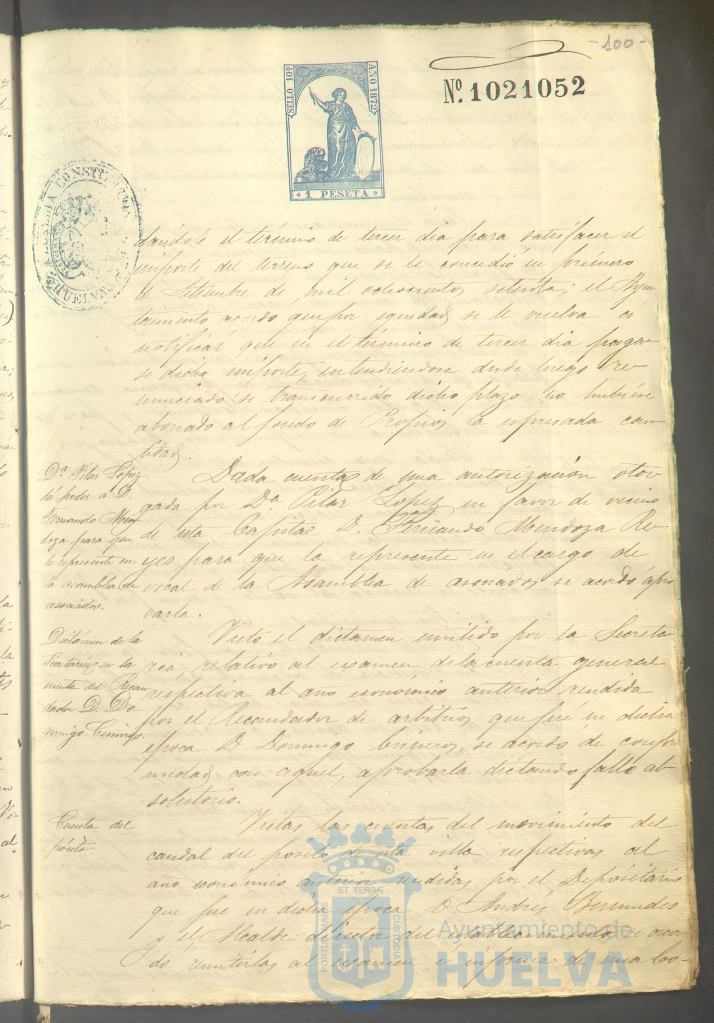 -100-
Nº. 1021052
SELLO 10º
AÑO 1872
1 PESETA
ALCALDIA CONSTITUCIONAL
HUELVA
dandole el termino de tercer dia para satisfacer el
importe del terreno que se le concedió en primero
de Setiembre de mil ochocientos setenta; el Ayun
tamiento acordó que por equidad se le vuelva a
notificar que en el término de tercer dia pague
se dicho importe, entendiendose desde luego re
nunciado si transcurrido dicho plazo no hubiere
abonado al fondo de Propios la espresada can
tidad.
Dª Pilar Lopez
da poder á D.
Fernando Men
doza para que
le represente en
la asamblea de
asociados.
Dada cuenta de una autorización otor
gada por Dª Pilar Lopez en favor de vecino
de esta Capital D. Fernando Mendoza Re
yes para que la represente en el cargo de
vocal de la Asamblea de asociados, se acordó apro
varla.
Dictamen de la
Secretaria en la
cuenta del Recau
dador D. Do
mingo
Visto el dictamen emitido por la Secreta
ria relativo al examen de la cuenta general
respectiva al año economico anterior rendida
por el Recaudador de arbitrios que fué en dicha
epoca D. Domingo se acordó de confor
midad con aquel, aprobarla dictando fallo ab
solutorio.
Cuenta del
pósito
Vistas las cuentas del movimiento del
caudal del posito de esta villa respectivas al
año económico anterior rendidas por el Depositario
que fué en dicha epoca D. Andrés Bermudez
y el Alcalde director del establecimiento, se acor
dó remitirlas al examen e informe de una Co-
PORTUS MARIS
ET TERRAE
CUSTODIA
Ayuntamiento de
HUELVA